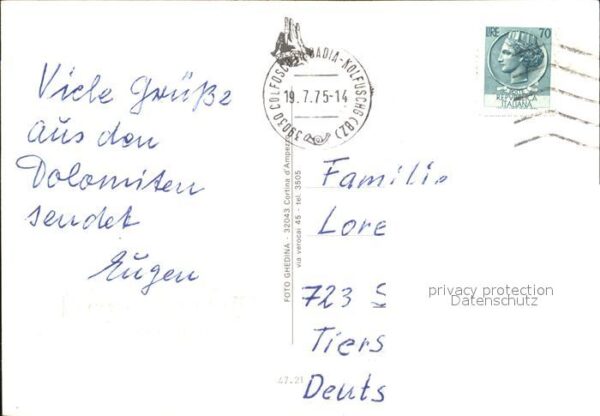 Viele Grüße
aus den
Dolomiten
sendet
Eugen
39030 COLFOSCO IN BADIA-KOLFUSCHG (BZ)
19.7.75-14
LIRE 70
REPUBBLICA
ITALIANA
FOTO GHEDINA - 32043 Cortina d'Ampezzo
via verocai 45 - tel. 3505
47.21
Familie
Lore
723 S
privacy protection
Datenschutz
Tiers
Deuts